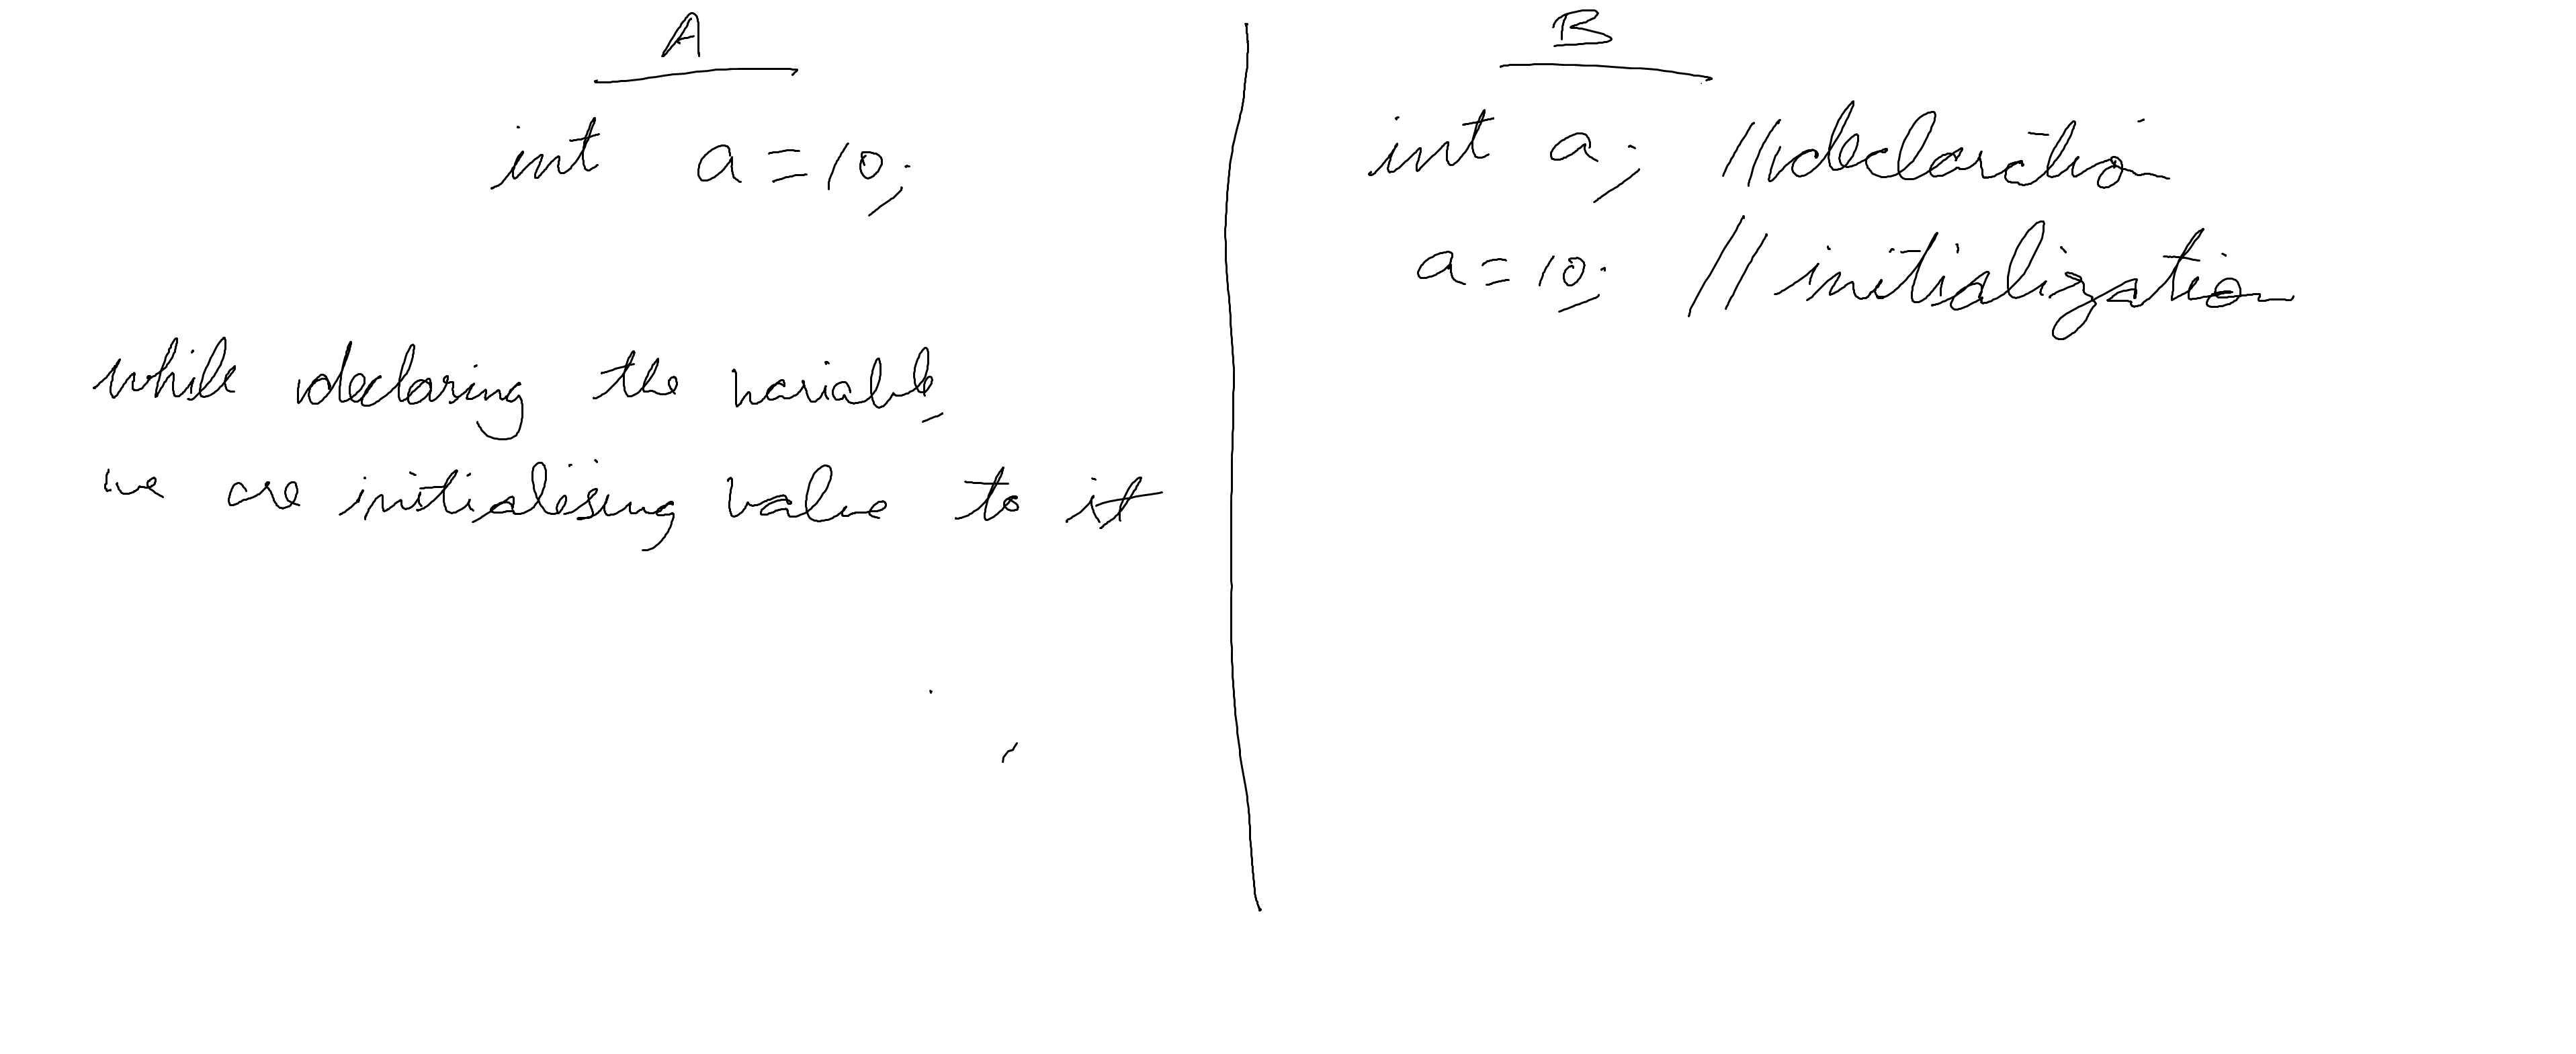 A
int a = 10;
while declaring the variable,
we are initialising value to it
B
int a; //declaration
a = 10; // initialization